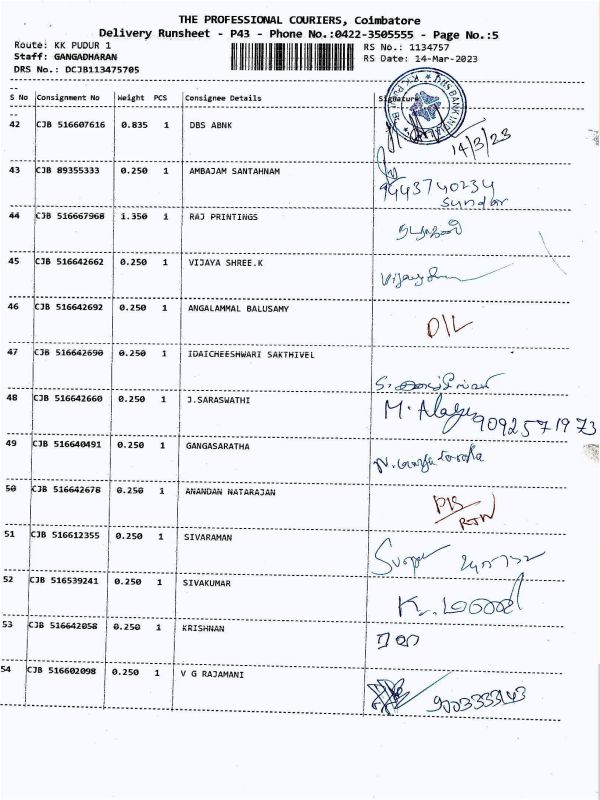 THE PROFESSIONAL COURIERS, Coimbatore
Delivery Runsheet - P43 - Phone No.:0422-3505555 - Page No.:5
Route: KK PUDUR 1 RS No.: 1134757
Staff: GANGADHARAN RS Date: 14-Mar-2023
DRS No.: DCJB113475705
--
S No Consignment No Weight PCS Consignee Details Signature
--
42 CJB 516607616 0.835 1 DBS ABNK
14/3/23
43 CJB 89355333 0.250 1 AMBAJAM SANTAHNAM
9443740234
Sundar
44 CJB 516667968 1.350 1 RAJ PRINTINGS
45 CJB 516642662 0.250 1 VIJAYA SHREE.K
46 CJB 516642692 0.250 1 ANGALAMMAL BALUSAMY
D/L
47 CJB 516642690 0.250 1 IDAICHEESHWARI SAKTHIVEL
48 CJB 516642660 0.250 1 J.SARASWATHI
M. Alagu 9092571973
49 CJB 516640491 0.250 1 GANGASARATHA
50 CJB 516642678 0.250 1 ANANDAN NATARAJAN
RTN
51 CJB 516612355 0.250 1 SIVARAMAN
52 CJB 516539241 0.250 1 SIVAKUMAR
53 CJB 516642058 0.250 1 KRISHNAN
54 CJB 516602098 0.250 1 V G RAJAMANI